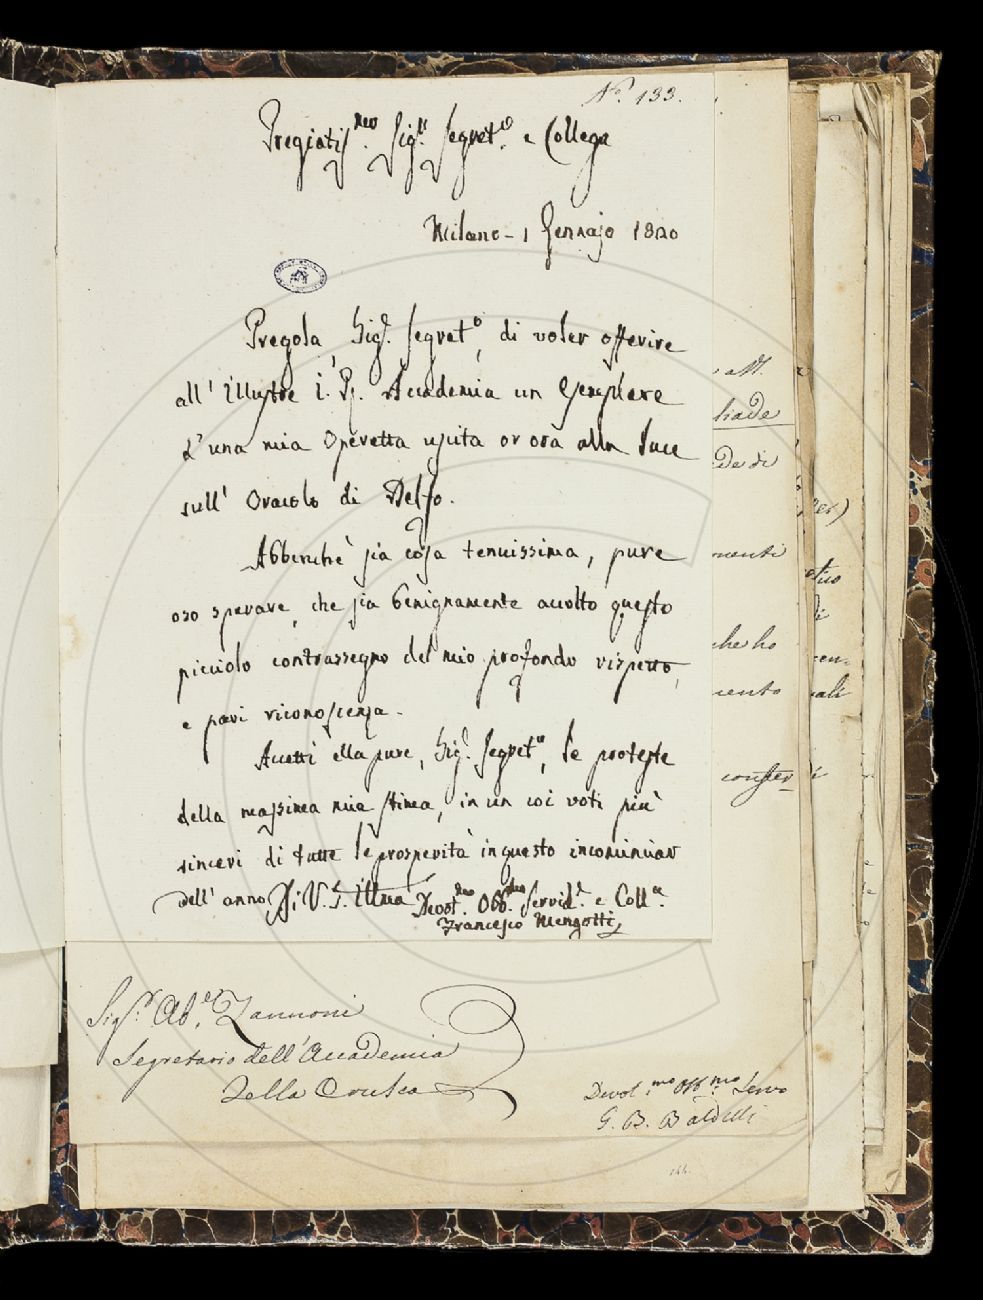 N.° 133.
Pregiatiss.mo Sig.r Segret.o e Collega
Milano - 1 Gennajo 1820
Pregola, Sig.r Segret.o, di voler offerire
all' Illustre I. R. Accademia un Esemplare
d'una mia Operetta uscita or ora alla luce
sull' Oracolo di Delfo.
Abbenchè sia cosa tenuissima, pure
oso sperare, che sia benignamente accolto questo
picciolo contrassegno del mio profondo rispetto,
e pari riconoscenza.
Accetti ella pure, Sig.r Segret.o, le proteste
della massima mia stima, in un coi voti più
sinceri di tutte le prosperità in questo incominciar
dell' anno Di V. S. Ill.ma Devot.mo Obb.mo Servid.e e Coll.a
Francesco Mengotti
att.
liade
de di
nenti
che ho
mento
conser
Sig.r Ab.e Zannoni
Segretario dell' Accademia
della Crusca
Devot.mo Obb.mo Servo
G. B. Baldelli
144.